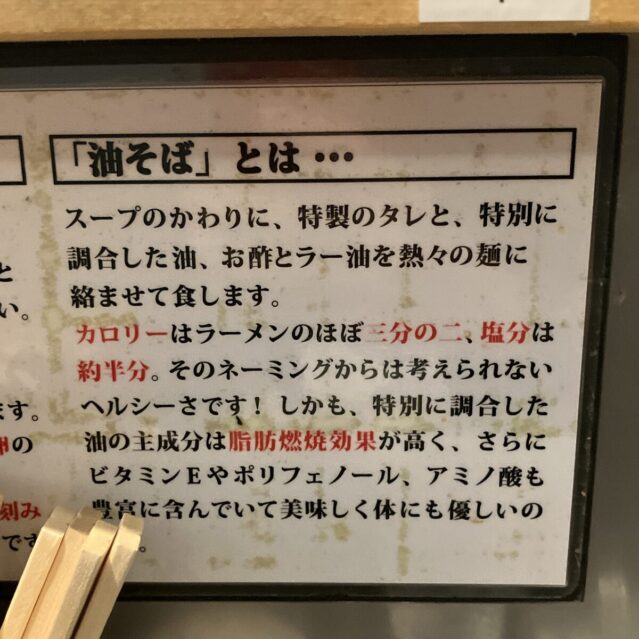 「油そば」とは…
スープのかわりに、特製のタレと、特別に
調合した油、お酢とラー油を熱々の麺に
絡ませて食します。
カロリーはラーメンのほぼ三分の二、塩分は
約半分。そのネーミングからは考えられない
ヘルシーさです！しかも、特別に調合した
油の主成分は脂肪燃焼効果が高く、さらに
ビタミンEやポリフェノール、アミノ酸も
豊富に含んでいて美味しく体にも優しいの
。
と
い。
ます。
卵の
刻み
です